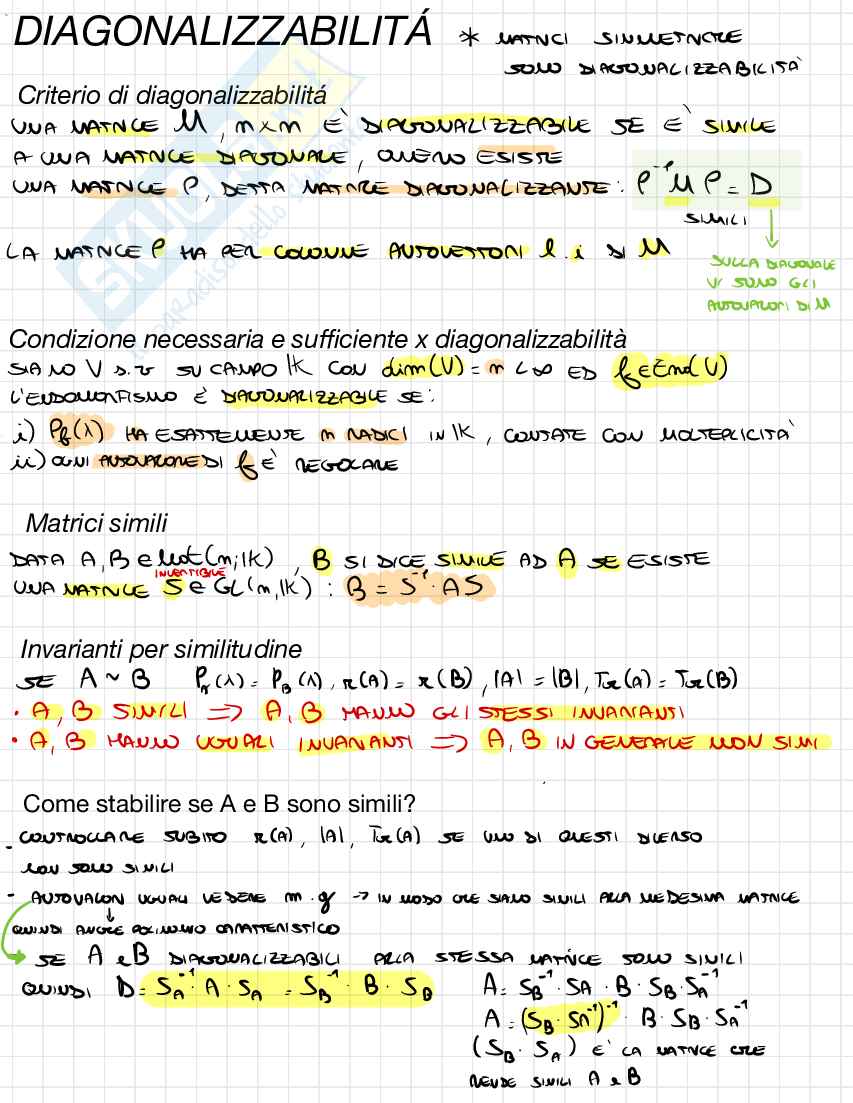 DIAGONALIZZABILITÁ * MATRICI SIMMETRICHE
SONO DIAGONALIZZABILITÀ
Criterio di diagonalizzabilitá
UNA MATRICE M, n×n È DIAGONALIZZABILE SE E' SIMILE
A UNA MATRICE DIAGONALE, OVVERO ESISTE
UNA MATRICE P, DETTA MATRICE DIAGONALIZZANTE: P⁻¹ M P = D
SIMILI
LA MATRICE P HA PER COLONNE AUTOVETTORI l.i DI M
SULLA DIAGONALE
VI SONO GLI
AUTOVALORI DI M
Condizione necessaria e sufficiente x diagonalizzabilità
SIANO V s.v SU CAMPO IK CON dim(V) = n < ∞ ED f ∈ End(V)
L'ENDOMORFISMO È DIAGONALIZZABILE SE:
i) Pf(λ) HA ESATTEMENTE n RADICI IN IK, CONTATE CON MOLTEPLICITA'
ii) OGNI AUTOVALORE DI f E' REGOLARE
Matrici simili
DATA A, B ∈ Mat(n; IK), B SI DICE SIMILE AD A SE ESISTE
INVERTIBILE
UNA MATRICE S ∈ GL(n, IK) : B = S⁻¹ · AS
Invarianti per similitudine
SE A ~ B P_A(λ) = P_B(λ), r(A) = r(B), |A| = |B|, Tr(A) = Tr(B)
· A, B SIMILI => A, B HANNO GLI STESSI INVARIANTI
· A, B HANNO UGUALI INVARIANTI => A, B IN GENERALE NON SIMI
Come stabilire se A e B sono simili?
- CONTROLLARE SUBITO r(A), |A|, Tr(A) SE UNO DI QUESTI DIVERSO
NON SONO SIMILI
- AUTOVALORI UGUALI VEDERE m.g → IN MODO CHE SIANO SIMILI ALLA MEDESIMA MATRICE
↓
QUINDI ANCHE POLINOMIO CARATTERISTICO
→ SE A e B DIAGONALIZZABILI ALLA STESSA MATRICE SONO SIMILI
QUINDI D = S_A⁻¹ · A · S_A = S_B⁻¹ · B · S_B A = S_B⁻¹ · S_A · B · S_B · S_A⁻¹
A = (S_B · S_A⁻¹)⁻¹ · B · S_B · S_A⁻¹
(S_B · S_A) E' LA MATRICE CHE
RENDE SIMILI A e B